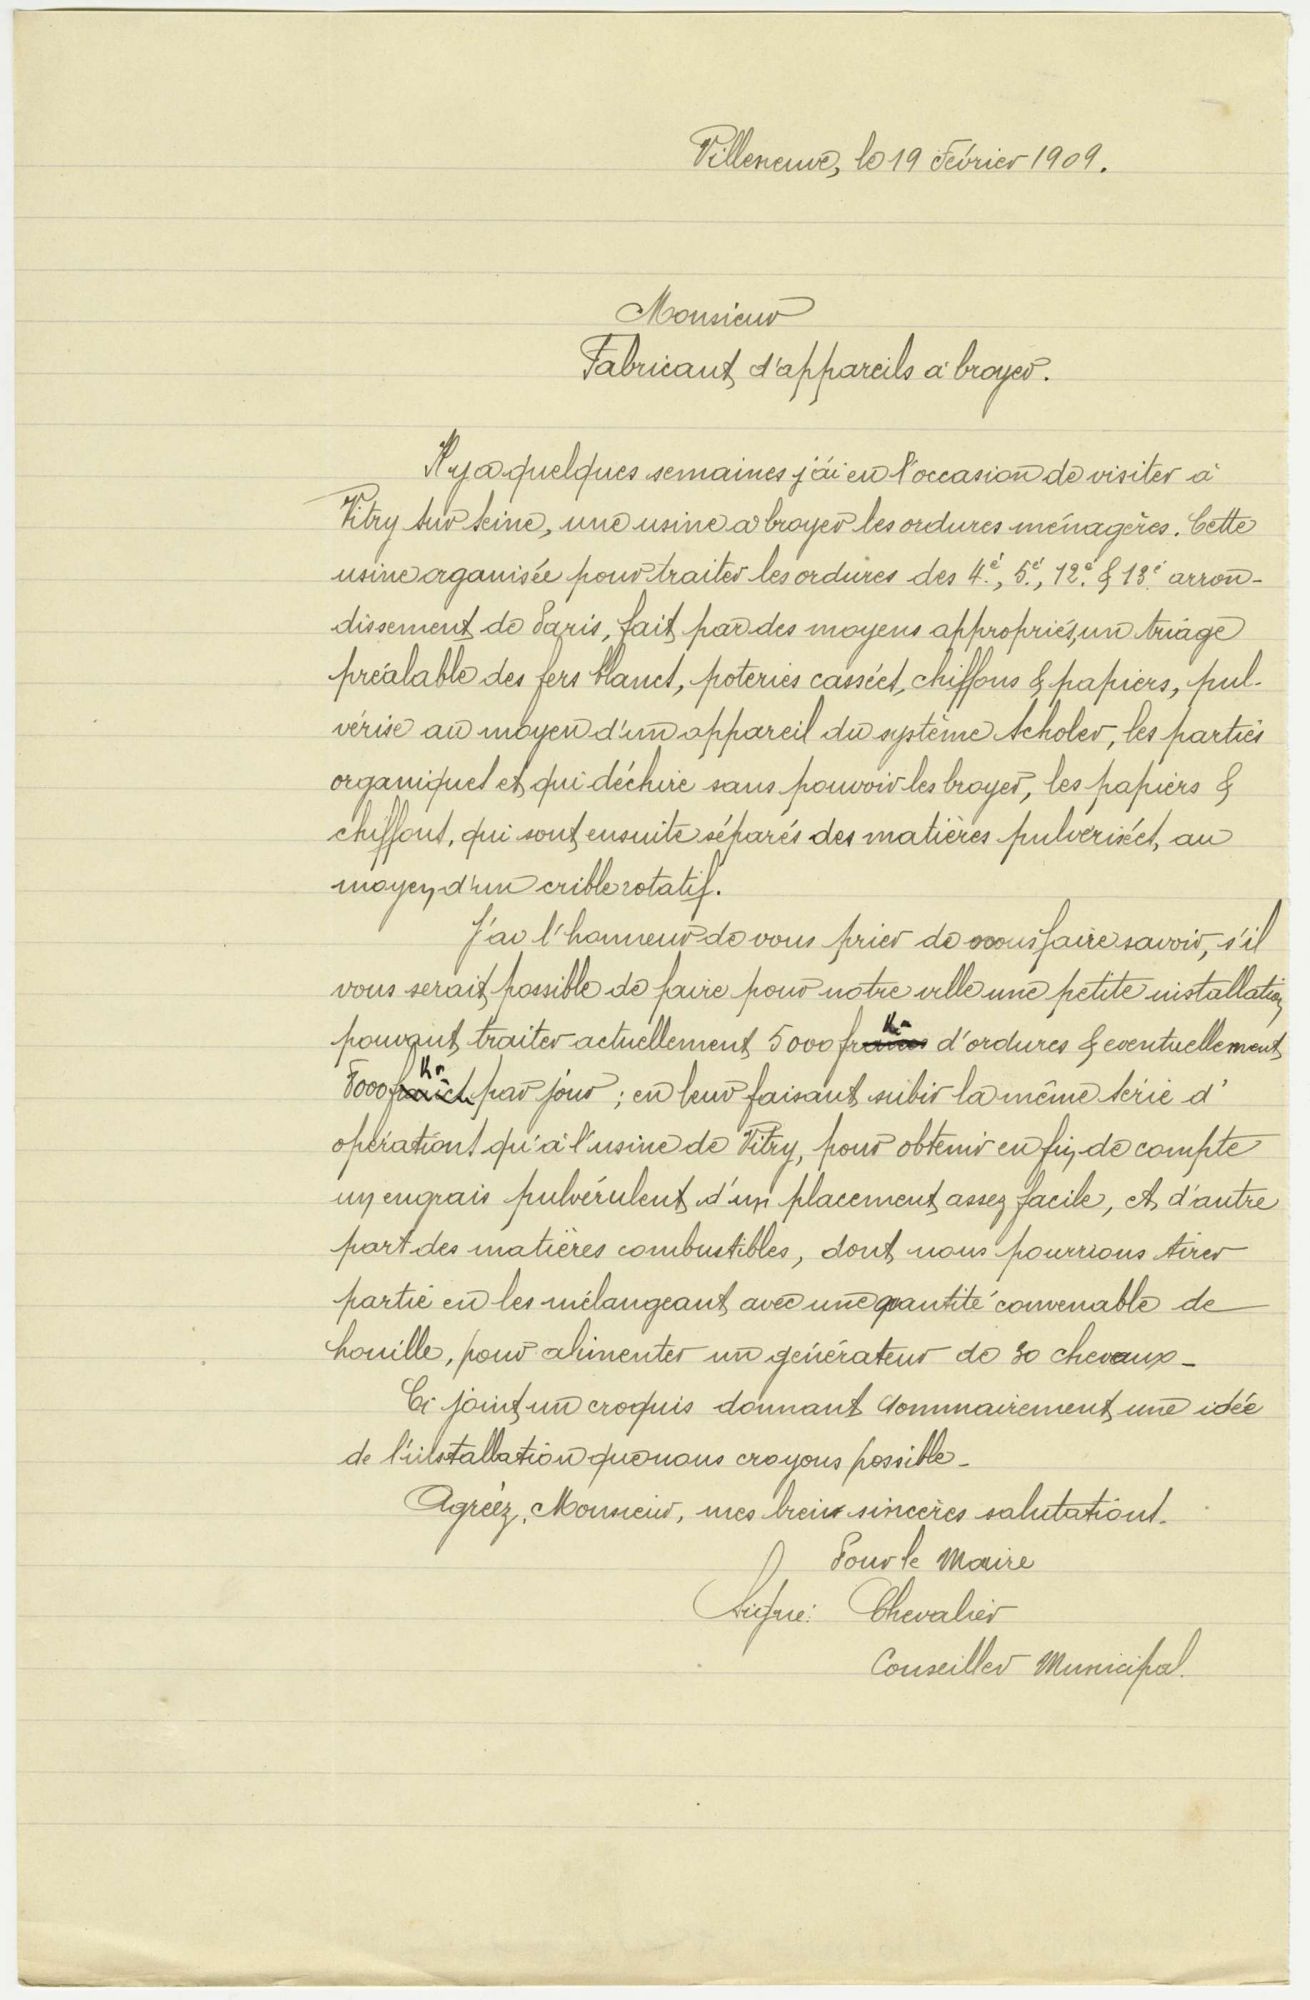 Villeneuve, le 19 Février 1909.
Monsieur
Fabricant d'appareils à broyer.
Il y a quelques semaines j'ai eu l'occasion de visiter à
Vitry sur Seine, une usine a broyer les ordures ménagères. Cette
usine organisée pour traiter les ordures des 4e., 5e., 12e. & 13e. arron-
dissement de Paris, fait par des moyens appropriés, un triage
préalable des fers blancs, poteries cassées, chiffons & papiers, pul-
vérise au moyen d'un appareil du système Scholer, les parties
organiques et qui déchire sans pouvoir les broyer, les papiers &
chiffons, qui sont ensuite séparés des matières pulvérisées, au
moyen d'un crible rotatif.
J'ai l'honneur de vous prier de nous faire savoir, s'il
vous serait possible de faire pour notre ville une petite installation
pouvant traiter actuellement 5000 francs Ko d'ordures & eventuellement
8000 francs Ko par jour ; en leur faisant subir la même série d'
opérations qu'à l'usine de Vitry, pour obtenir en fin de compte
un engrais pulvérulent d'un placement assez facile, et d'autre
part des matières combustibles, dont nous pourrions tirer
partie en les mélangeant avec une quantité convenable de
houille, pour alimenter un générateur de 30 chevaux_
Ci joint un croquis donnant sommairement une idée
de l'installation que nous croyons possible_
Agréez, Monsieur, mes bien sincères salutations_
Pour le Maire
Signé: Chevalier
Conseiller Municipal.